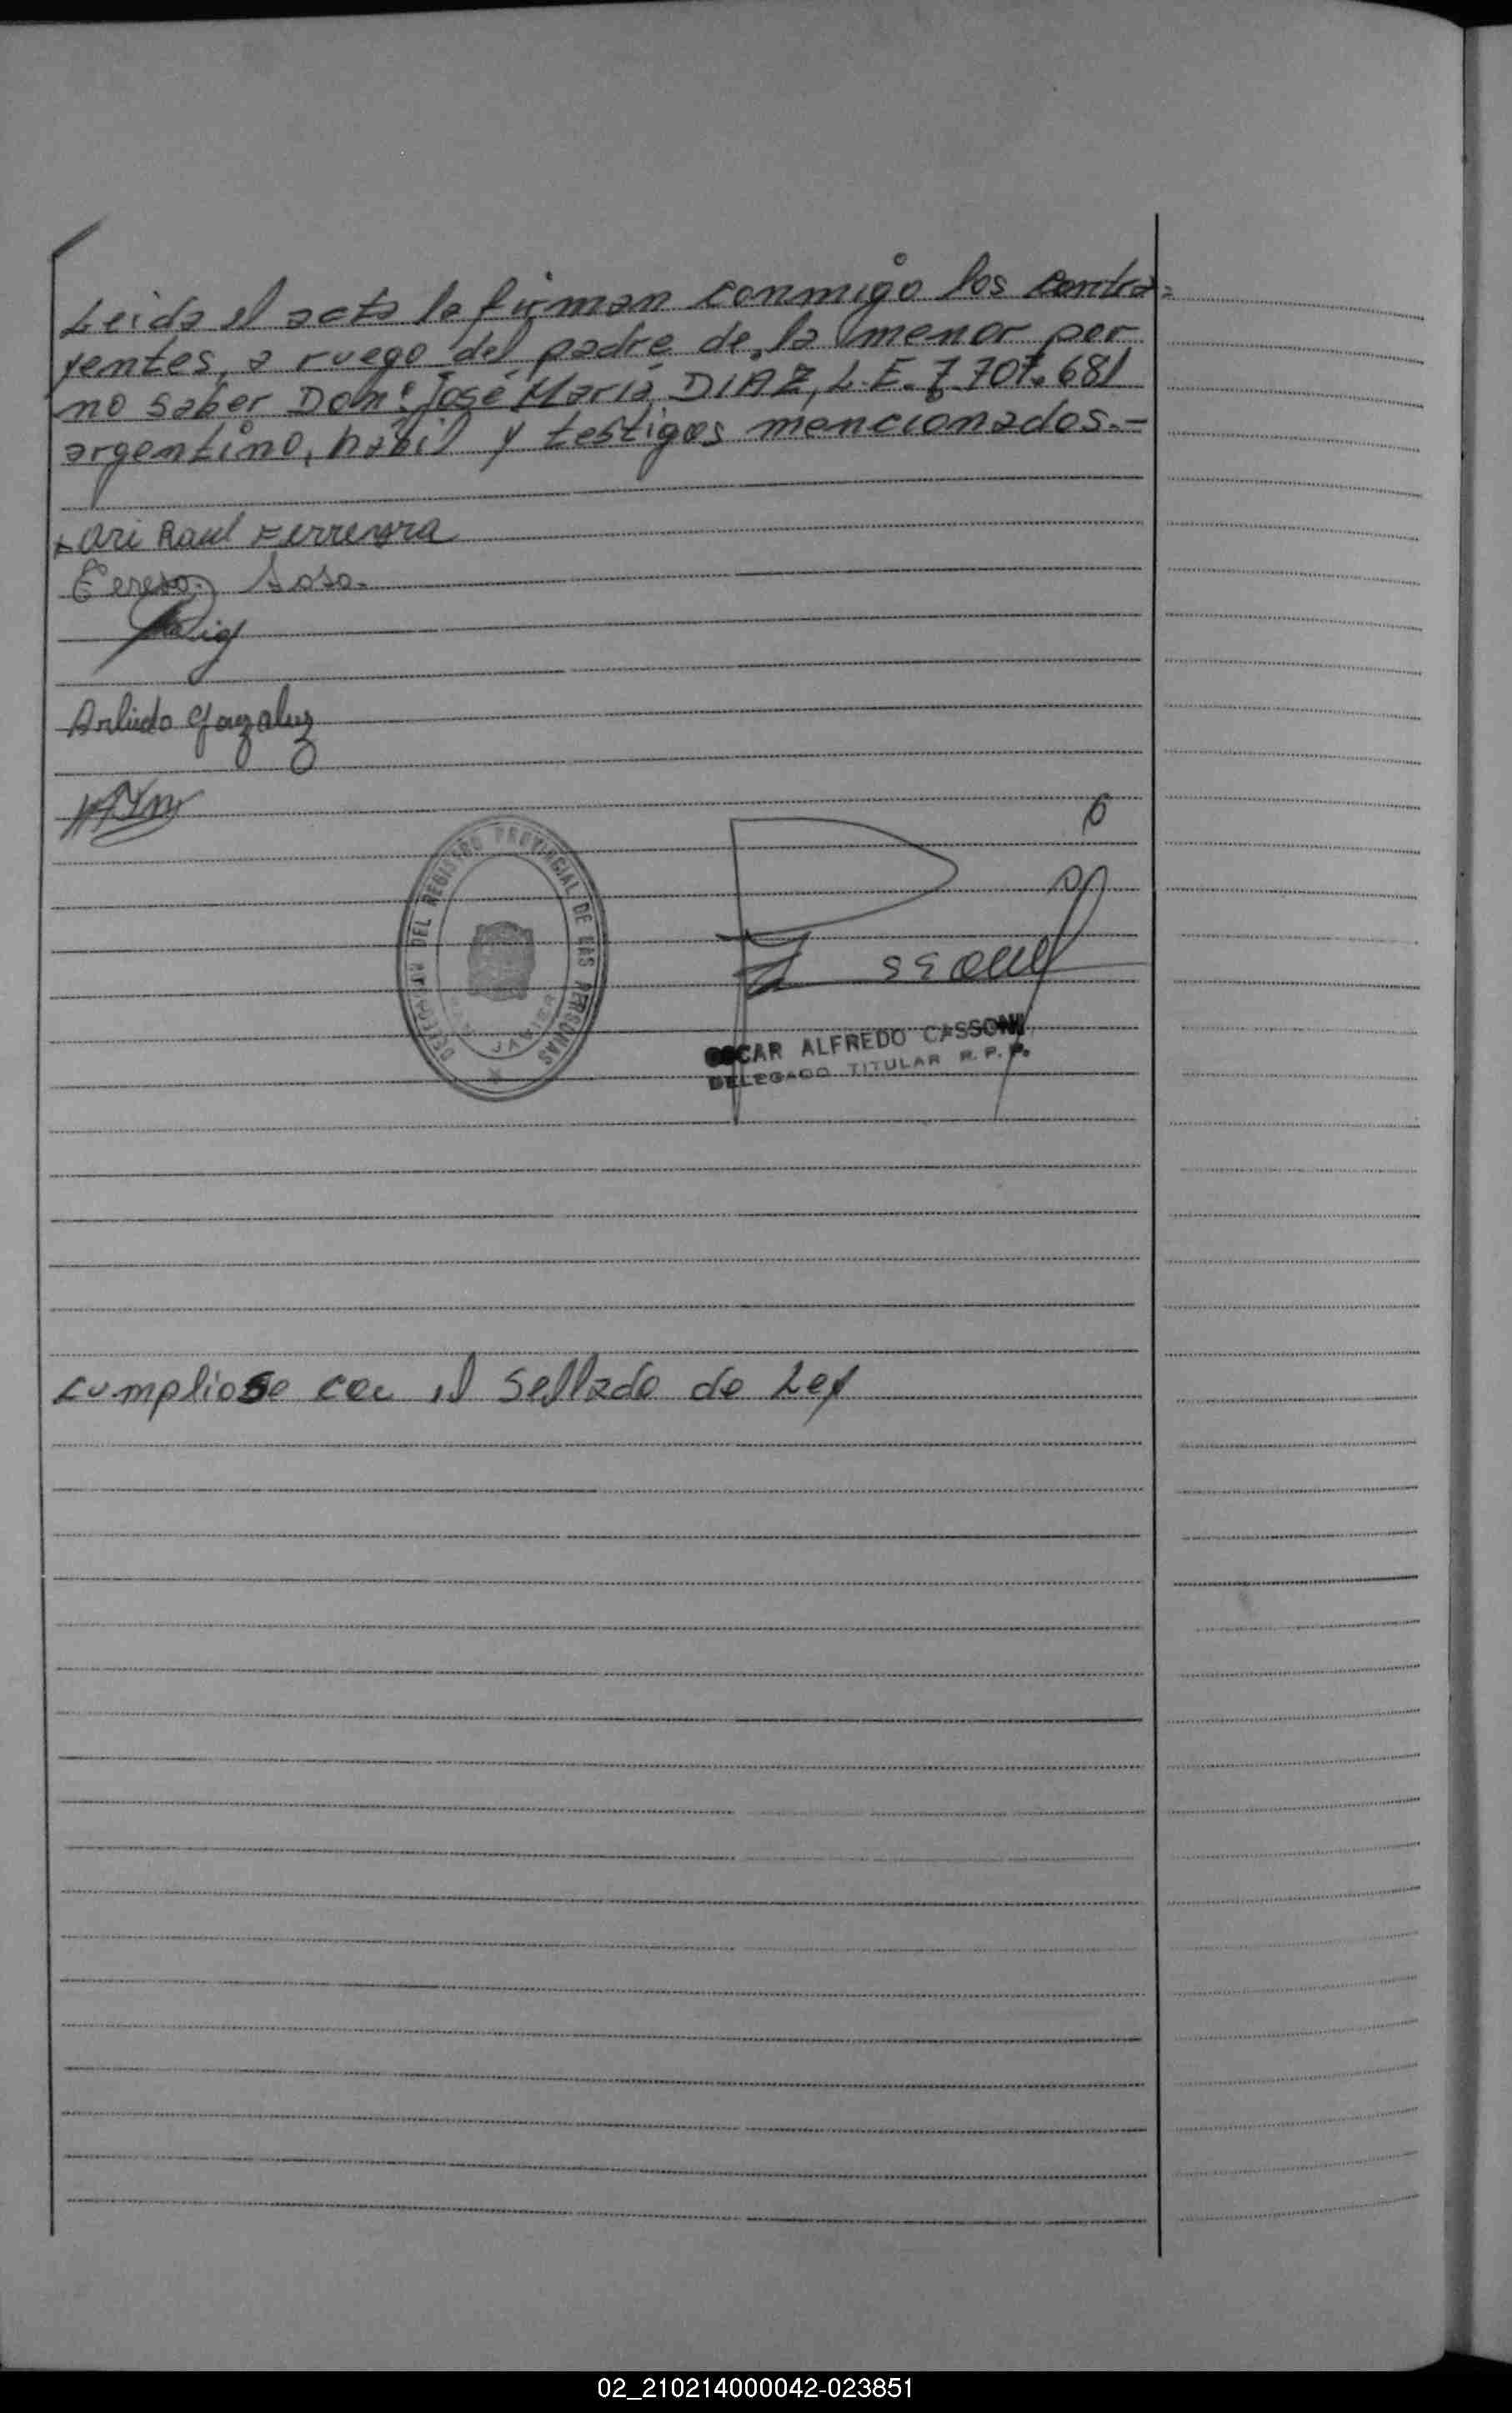 Leida el acta la firman conmigo los contra=
yentes, a ruego del padre de la menor por
no saber Don: José María DIAZ, L.E. 7.707.681
argentino, hábil y testigos mencionados.-
Ari Raul Ferreyra
Teresa Sosa.
Arlindo Gonzalez
DELEGACION DEL REGISTRO PROVINCIAL DE LAS PERSONAS
JAVIER
OSCAR ALFREDO CASSONI
DELEGADO TITULAR R. P. P.
Cumpliose con el Sellado de Ley
02_210214000042-023851